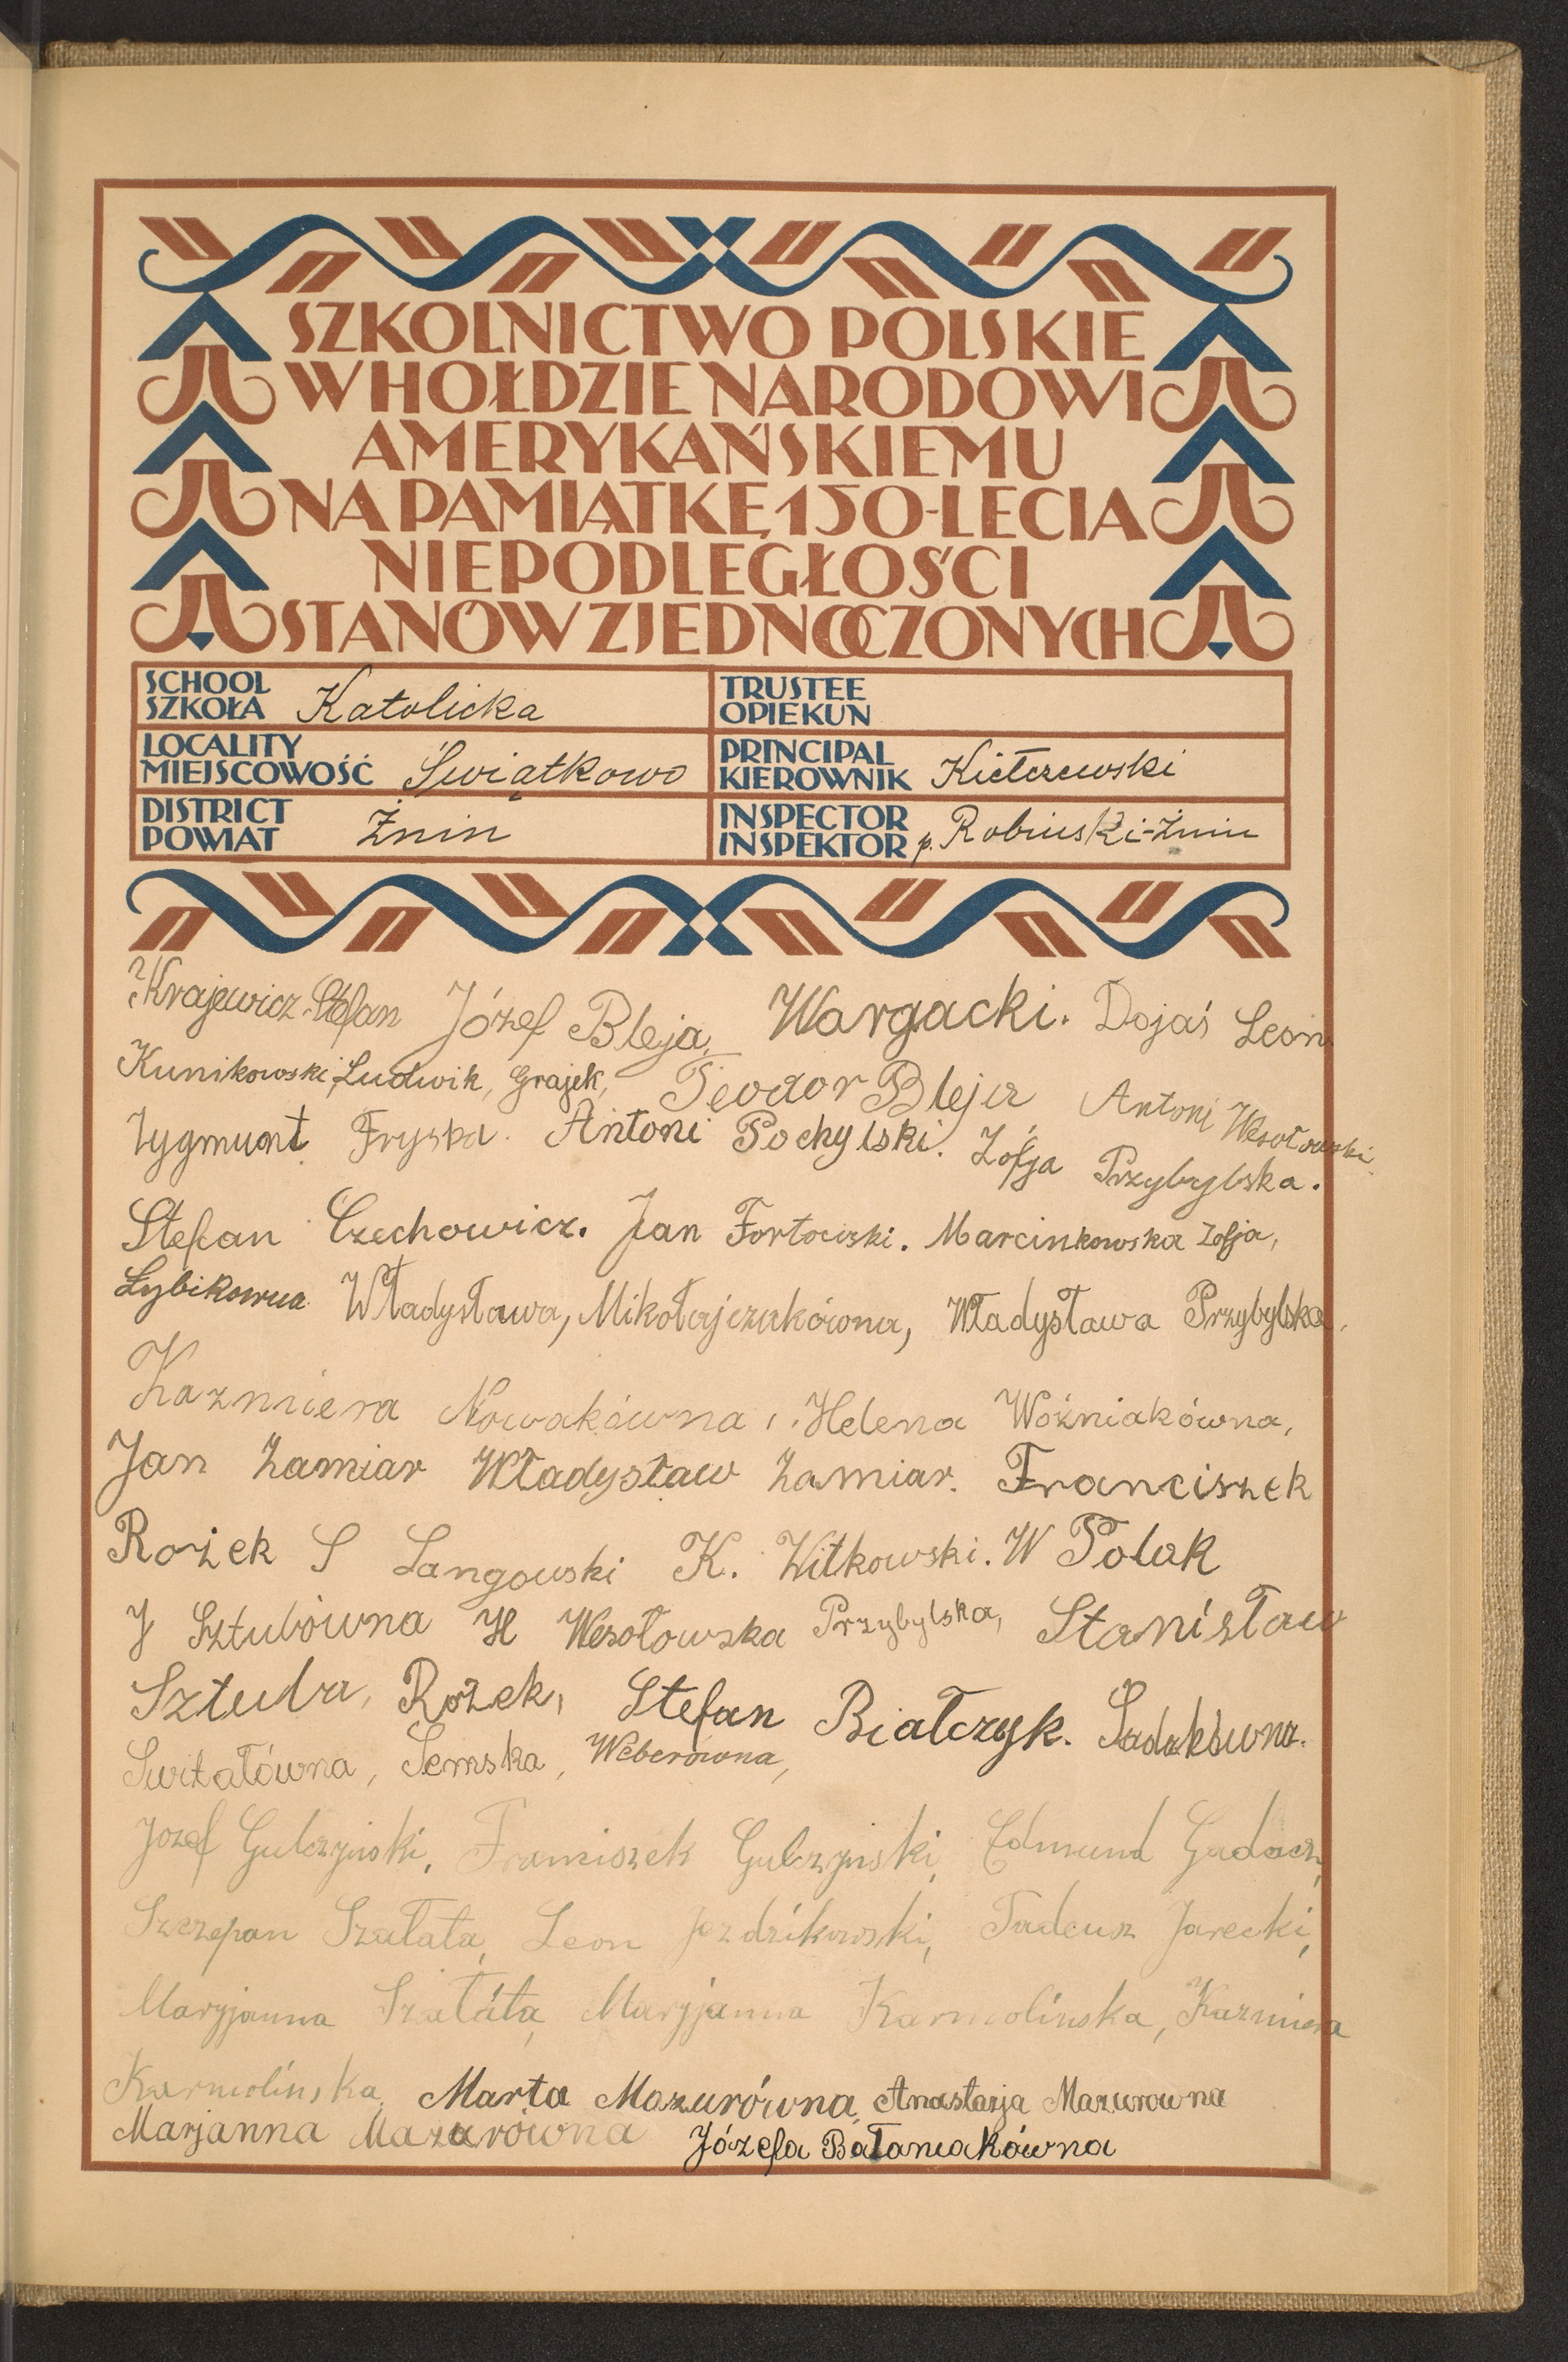 SZKOLNICTWO POLSKIE
W HOŁDZIE NARODOWI
AMERYKAŃSKIEMU
NA PAMIĄTKĘ 150-LECIA
NIEPODLEGŁOŚCI
STANÓW ZJEDNOCZONYCH
SCHOOL
SZKOŁA Katolicka
TRUSTEE
OPIEKUN
LOCALITY
MIEJSCOWOŚĆ Świątkowo
PRINCIPAL
KIEROWNIK Kiełczewski
DISTRICT
POWIAT Żnin
INSPECTOR
INSPEKTOR p. Robiński-Żnin
Krajewicz Stefan Józef Bleja, Wargacki. Dojaś Leon
Kunikowski, Ludwik, Grajek, Teodor Bleja Antoni Wesołowski.
Zygmunt Fryska. Antoni Pochylski. Zofja Przybylska.
Stefan Czechowicz. Jan Marcinkowska Zofja,
Władysława, Mikołajczakówna, Władysława Przybylska,
Kazmiera Nowakówna, Helena Woźniakówna,
Jan Zamiar Władysław Zamiar. Franciszek
Rożek S Langowski K. Witkowski. W Polak
J Sztubówna H Wesołowska Przybylska, Stanisław
Sztuba, Rożek, Stefan Białczyk. Sadakówna.
Świtałówna, Semska, Weberówna,
Jozef Gulczyński, Franciszek Gulczyński, Edmund Gadacz,
Szczepan Szałata, Leon Jezdzikowski, Tadeusz Jarecki,
Maryjanna Szałata, Maryjanna Karmolińska, Kazmiera
Karmolińska, Marta Mazurówna, Anastazja Mazurowna
Marjanna Mazurówna Józefa Bataniakówna